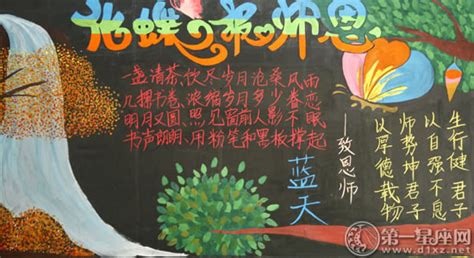 化蝶 报师恩
一盏清茶饮尽岁月沧桑风雨
几摞书卷,浓缩岁月多少眷恋
明月又圆,照见窗前人影不眠
书声朗朗,用粉笔和黑板撑起
蓝天
——致恩师
生行健君子
以自强不息
师势坤君子
以厚德载物
第一星座网
www.d1xz.net